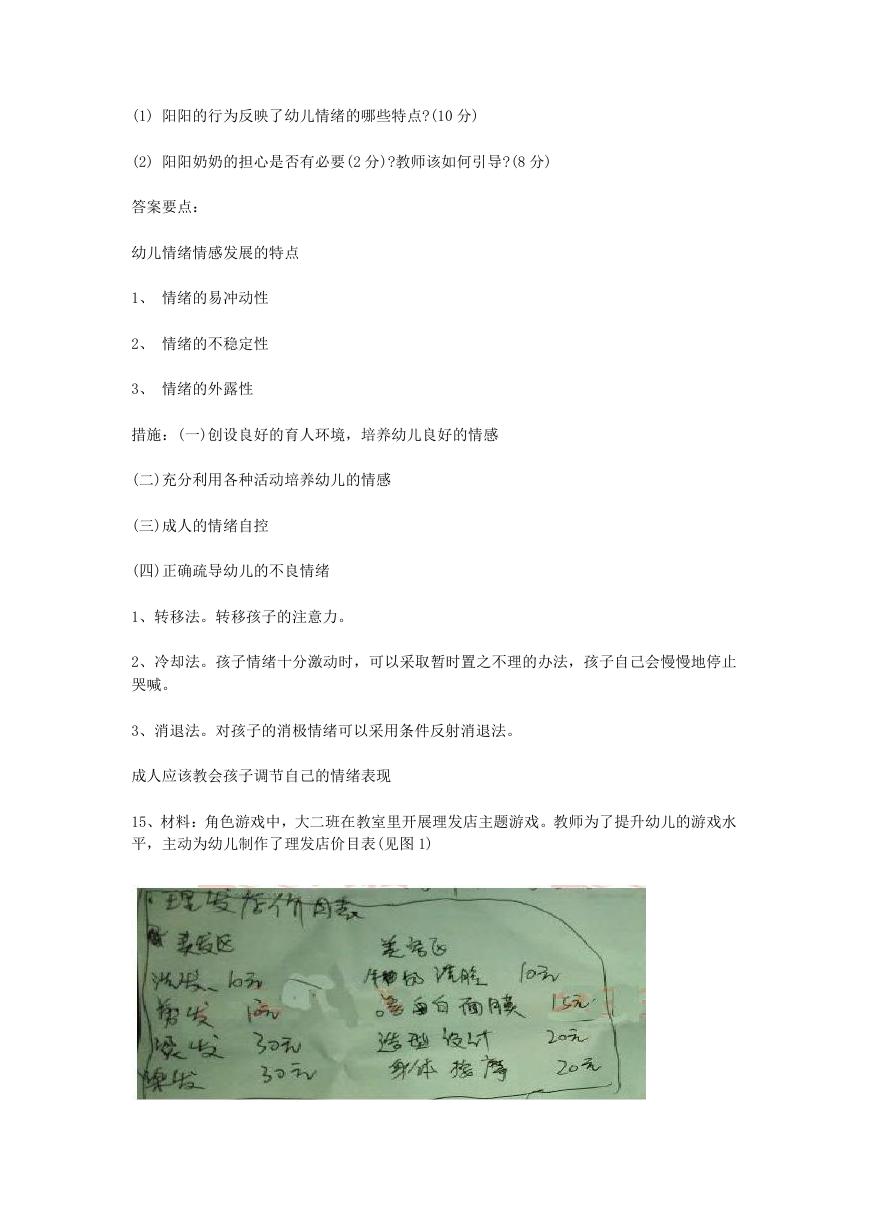 (1) 阳阳的行为反映了幼儿情绪的哪些特点?(10 分)
(2) 阳阳奶奶的担心是否有必要(2 分)?教师该如何引导?(8 分)
答案要点:
幼儿情绪情感发展的特点
1、 情绪的易冲动性
2、 情绪的不稳定性
3、 情绪的外露性
措施:(一)创设良好的育人环境，培养幼儿良好的情感
(二)充分利用各种活动培养幼儿的情感
(三)成人的情绪自控
(四)正确疏导幼儿的不良情绪
1、转移法。转移孩子的注意力。
2、冷却法。孩子情绪十分激动时，可以采取暂时置之不理的办法，孩子自己会慢慢地停止
哭喊。
3、消退法。对孩子的消极情绪可以采用条件反射消退法。
成人应该教会孩子调节自己的情绪表现
15、材料：角色游戏中，大二班在教室里开展理发店主题游戏。教师为了提升幼儿的游戏水
平，主动为幼儿制作了理发店价目表(见图 1)
理发店价目表
美发区 美容区
洗发 10元 牛奶 洗脸 10元
剪发 10元 蛋白面膜 15元
烫发 30元 造型设计 20元
染发 30元 身体按摩 20元